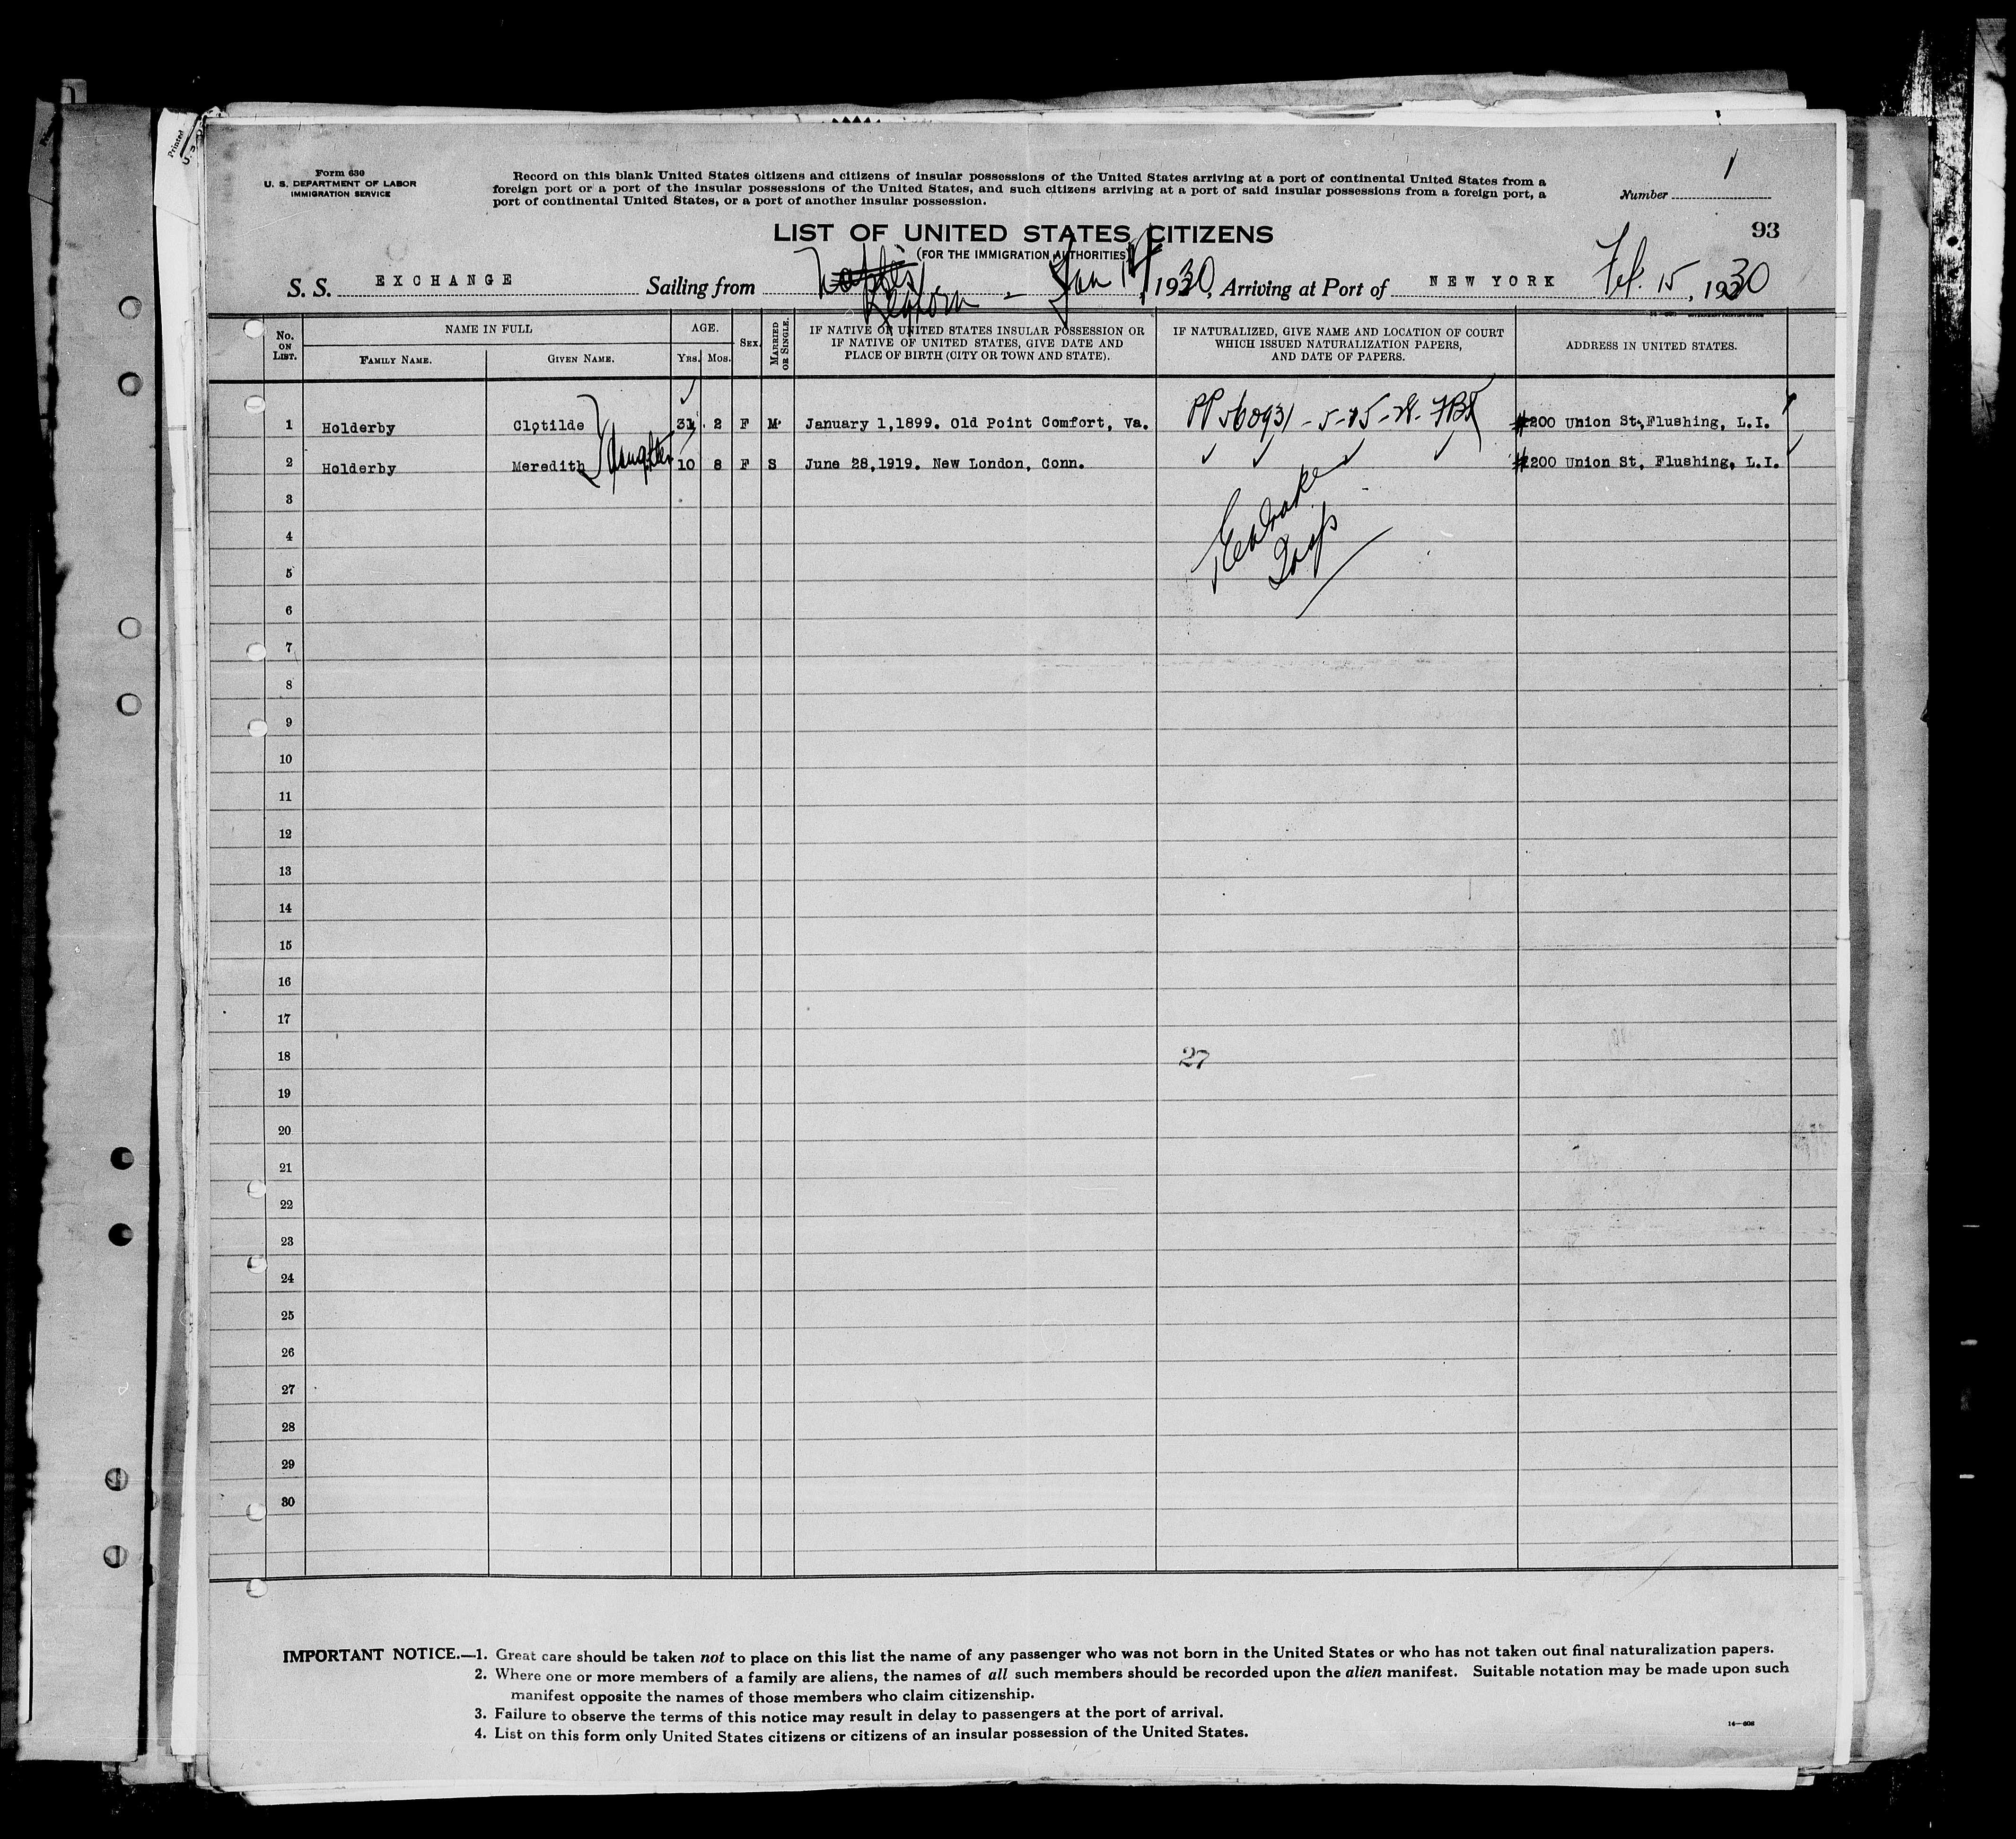 Printed
U. S.
Form 630
U. S. DEPARTMENT OF LABOR
IMMIGRATION SERVICE
Record on this blank United States citizens and citizens of insular possessions of the United States arriving at a port of continental United States from a
foreign port or a port of the insular possessions of the United States, and such citizens arriving at a port of said insular possessions from a foreign port, a
port of continental United States, or a port of another insular possession.
Number 1
93
LIST OF UNITED STATES CITIZENS
(FOR THE IMMIGRATION AUTHORITIES)
S. S. EXCHANGE Sailing from Naples Leghorn - Jan , 1930, Arriving at Port of NEW YORK Feb. 15, 1930
No. ON LIST.
NAME IN FULL
FAMILY NAME.
GIVEN NAME.
AGE.
YRS.
MOS.
SEX.
MARRIED OR SINGLE.
IF NATIVE OF UNITED STATES INSULAR POSSESSION OR
IF NATIVE OF UNITED STATES, GIVE DATE AND
PLACE OF BIRTH (CITY OR TOWN AND STATE).
IF NATURALIZED, GIVE NAME AND LOCATION OF COURT
WHICH ISSUED NATURALIZATION PAPERS,
AND DATE OF PAPERS.
ADDRESS IN UNITED STATES.
1 Holderby Clotilde 31 2 F M January 1,1899. Old Point Comfort, Va. PP 560931 #200 Union St, Flushing, L.I.
2 Holderby Meredith daughter 10 8 F S June 28,1919. New London, Conn. #200 Union St, Flushing, L.I.
3
4
5
6
7
8
9
10
11
12
13
14
15
16
17
18 27
19
20
21
22
23
24
25
26
27
28
29
30
IMPORTANT NOTICE.—1. Great care should be taken not to place on this list the name of any passenger who was not born in the United States or who has not taken out final naturalization papers.
2. Where one or more members of a family are aliens, the names of all such members should be recorded upon the alien manifest. Suitable notation may be made upon such
manifest opposite the names of those members who claim citizenship.
3. Failure to observe the terms of this notice may result in delay to passengers at the port of arrival.
4. List on this form only United States citizens or citizens of an insular possession of the United States.
14—608